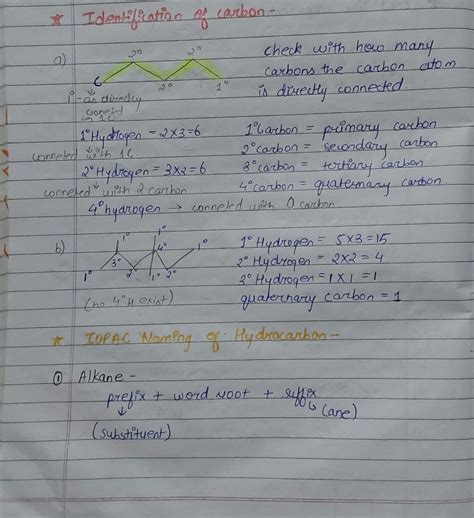 * Identification of carbon -
a)
2° 2°
C 2° 1°
1° - as directly
conneted
to 1C
check with how many
carbons the carbon atom
is directly connected.
1° Hydrogen = 2×3 = 6
conneted with 1C
2° Hydrogen = 3×2 = 6
conneted with 2 carbon
4° hydrogen → conneted with 0 carbon
1° Carbon = primary carbon
2° carbon = secondary carbon
3° carbon = tertiary carbon
4° carbon = quaternary carbon
b)
1° 1° 1°
4°
1° 3° 2° 1° 2°
(no 4°H exist)
1° Hydrogen = 5×3 = 15
2° Hydrogen = 2×2 = 4
3° Hydrogen = 1×1 = 1
quaternary carbon = 1
* IUPAC Naming of Hydrocarbon -
① Alkane -
prefix + word root + suffix
(substituent)
(ane)